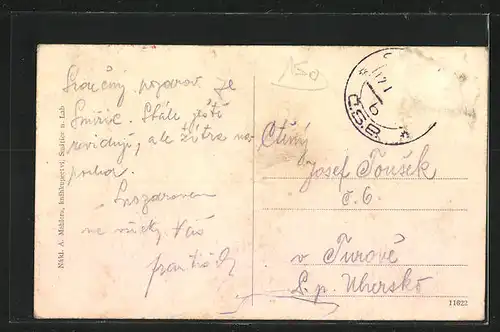 Srdečný pozdrav ze
Smiřic. Stále ještě
reviduji, ale zítra na-
S pozdravem
na všecky Váš
František
Nákl. A. Mohlera, knihkupectví, Smiřice n. Lab
150
Ctěný
Josef Toušek
č. 6.
v Turově
L. p. Uhersko
11622